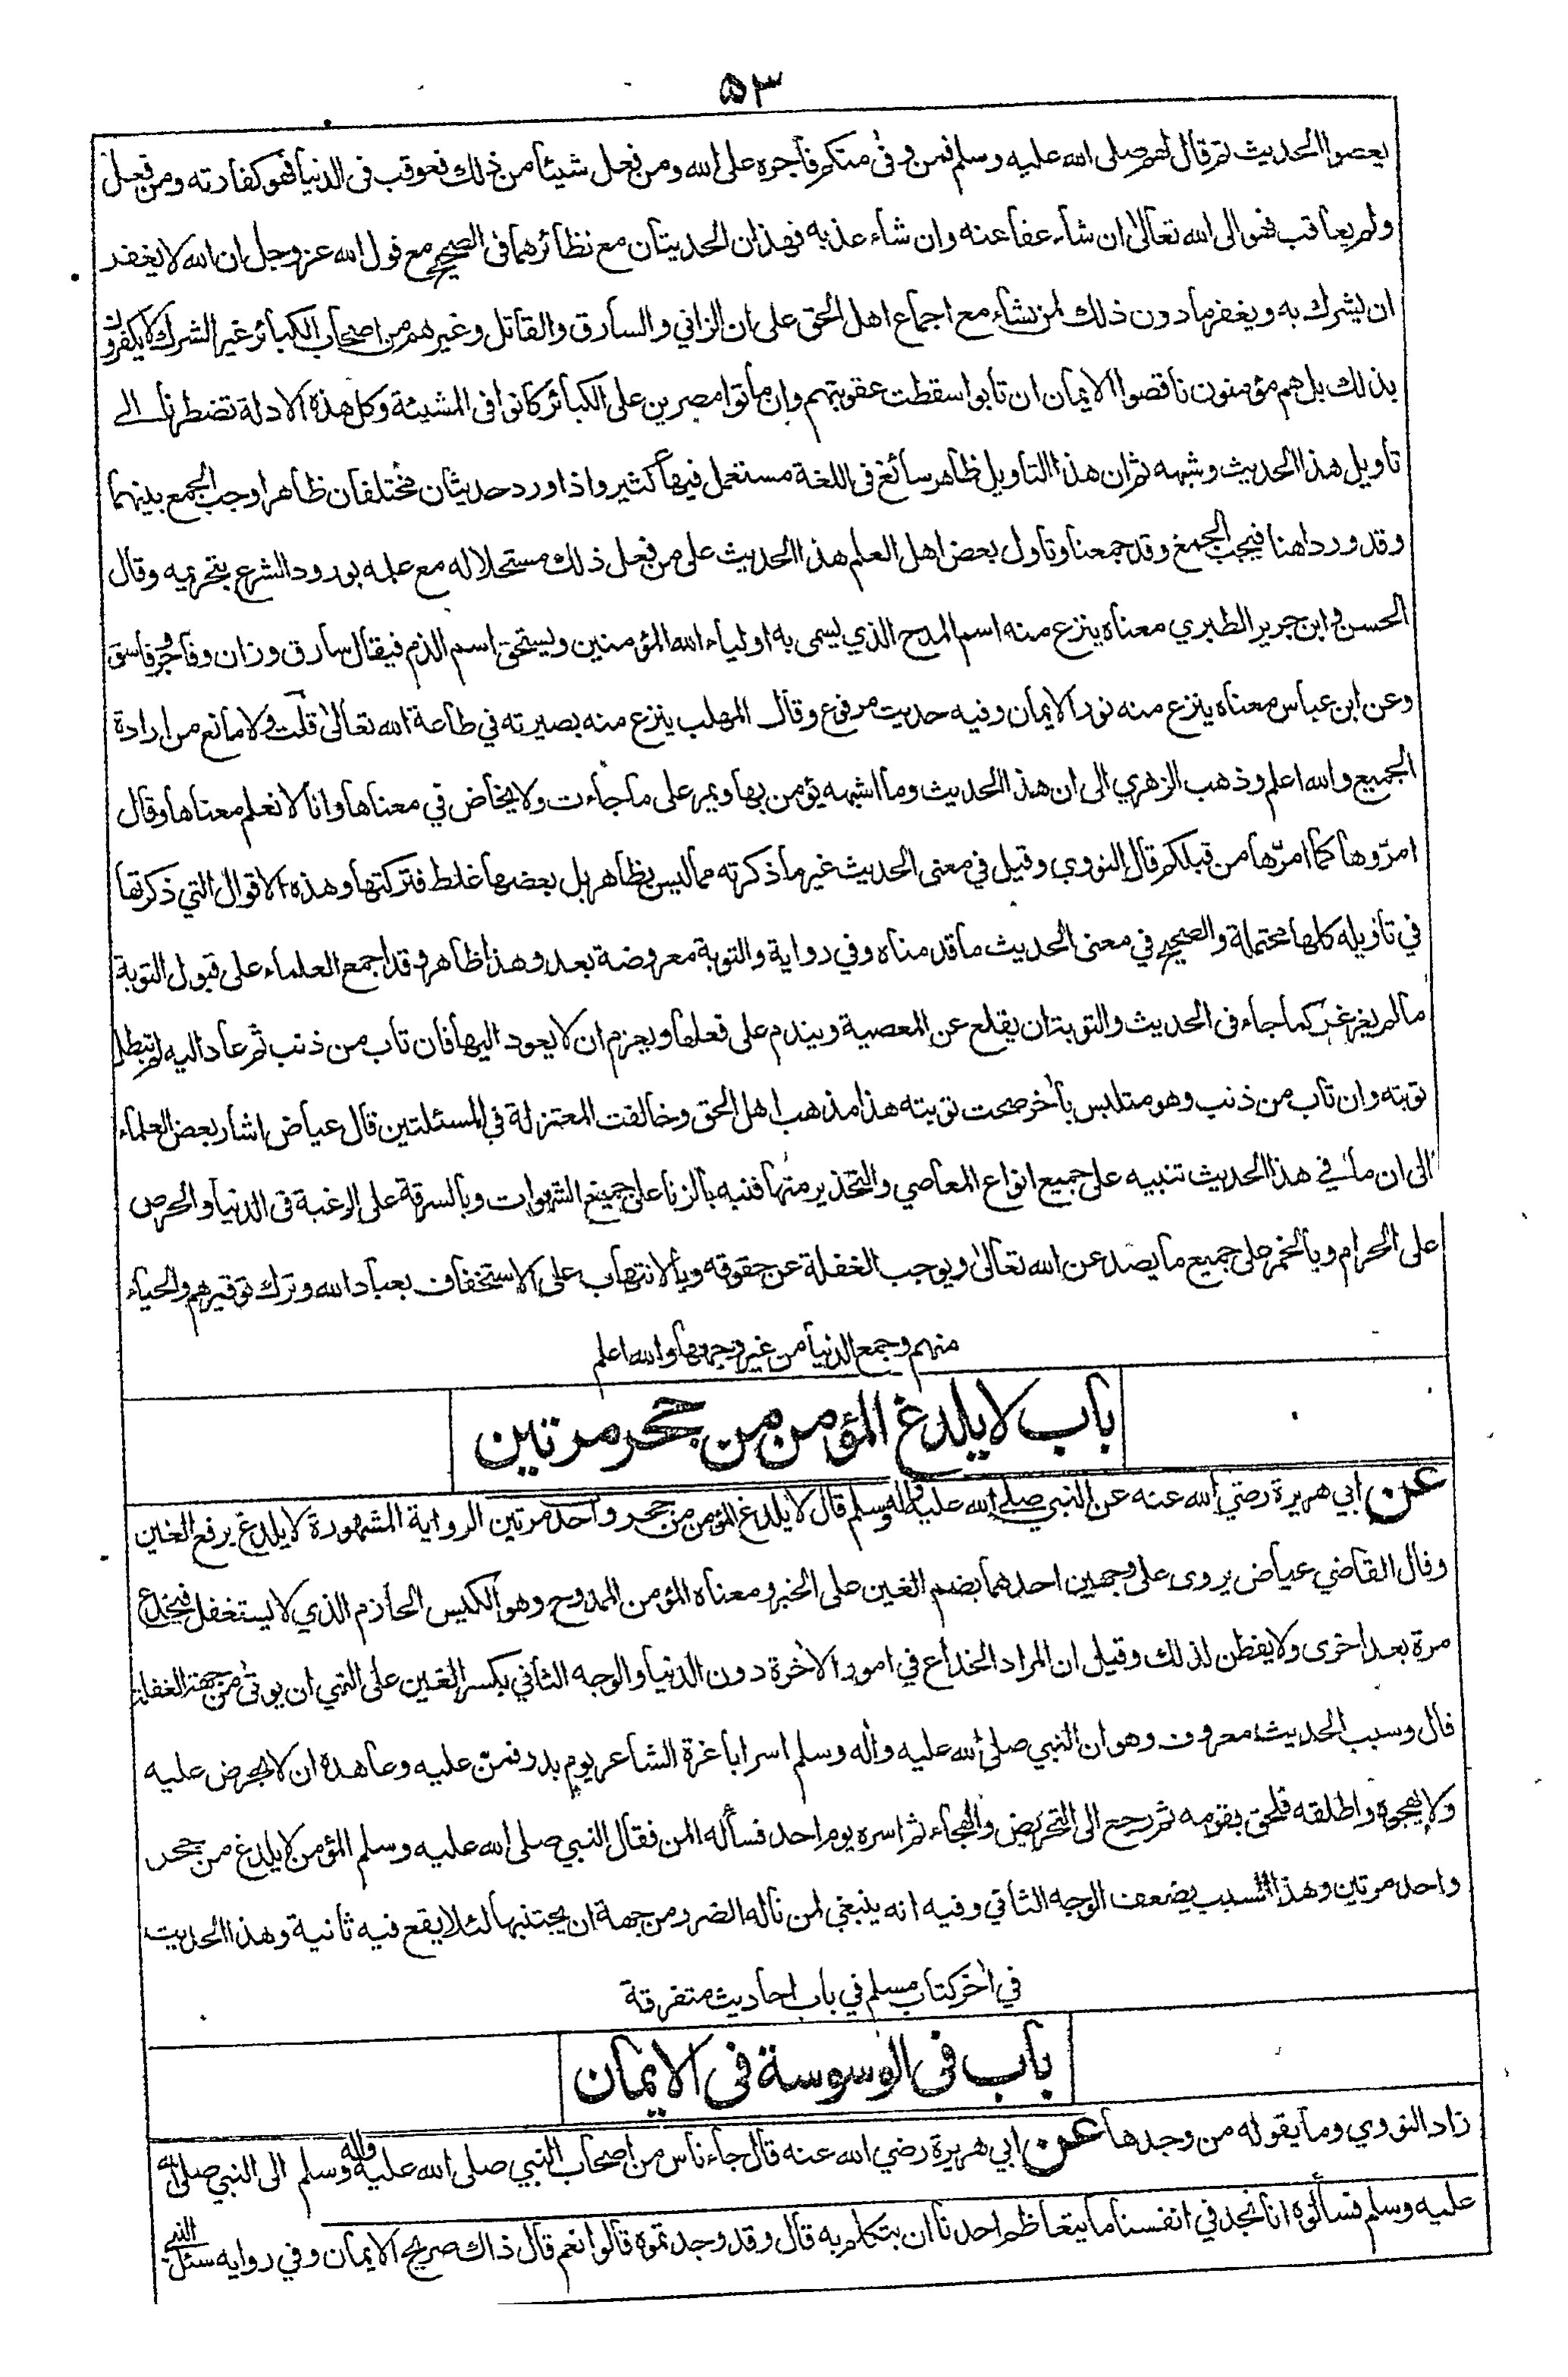 ٥٣
يعصوا الحديث ثم قال لهم صلى الله عليه وسلم فمن وفى منكم فأجره على الله ومن فعل شيئا من ذلك فعوقب فى الدنيا فهو كفارته ومن فعل
ولم يعاقب فهو الى الله تعالى ان شاء عفا عنه وان شاء عذبه فهذان الحديثان مع نظائرهما فى الصحيح مع قول الله عز وجل ان الله لا يغفر
ان يشرك به ويغفر ما دون ذلك لمن يشاء مع اجماع اهل الحق على ان الزاني والسارق والقاتل وغيرهم من اصحاب الكبائر غير الشرك لا يكفرون
بذلك بل هم مؤمنون ناقصوا الايمان ان تابوا سقطت عقوبتهم وان ماتوا مصرين على الكبائر كانوا فى المشيئة وكل هذه الادلة تضطرنا الى
تأويل هذا الحديث وشبهه ثم ان هذا التاويل ظاهر سائغ فى اللغة مستعمل فيها كثير واذا ورد حديثان مختلفان ظاهرا وجب الجمع بينهما
وقد وردا هنا فيجب الجمع وقد جمعنا وتاول بعض اهل العلم هذا الحديث على من فعل ذلك مستحلا له مع علمه بورود الشرع بتحريمه وقال
الحسن و ابن جرير الطبري معناه ينزع منه اسم المدح الذي يسمى به اولياء الله المؤمنين ويستحق اسم الذم فيقال سارق وزان وفاجر وفاسق
وعن ابن عباس معناه ينزع منه نور الايمان وفيه حديث مرفوع وقال المهلب ينزع منه بصيرته في طاعة الله تعالى قلت ولا مانع من ارادة
الجميع والله اعلم وذهب الزهري الى ان هذا الحديث وما اشبهه يؤمن بها ويمر على ما جاءت ولا يخاض في معناها وانا لا نعلم معناها وقال
امرّوها كما امرّها من قبلكم قال النووي وقيل في معنى الحديث غير ما ذكرته مما ليس بظاهر بل بعضها غلط فتركتها وهذه الاقوال التي ذكرتها
في تاويله كلها محتملة والصحيح في معنى الحديث ما قدمناه وفي رواية والتوبة معروضة بعد وهذا ظاهر وقد اجمع العلماء على قبول التوبة
ما لم يغرغر كما جاء فى الحديث والتوبة ان يقلع عن المعصية ويندم على فعلها ويجزم ان لا يعود اليها فان تاب من ذنب ثم عاد اليه لم تبطل
توبته وان تاب من ذنب وهو متلبس بأخر صحت توبته هذا مذهب اهل الحق وخالفت المعتزلة في المسئلتين قال عياض اشار بعض العلماء
الى ان ما في هذا الحديث تنبيه على جميع انواع المعاصي والتحذير منها فنبه بالزنا على جميع الشهوات وبالسرقة على الرغبة فى الدنيا والحرص
على الحرام وبالخمر على جميع ما يصد عن الله تعالى ويوجب الغفلة عن حقوقه وبالانتهاب على الاستخفاف بعباد الله وترك توقيرهم والحياء
منهم وجمع الدنيا من غير وجهها والله اعلم
باب لا يلدغ المؤمن من جحر مرتين
عن ابي هريرة رضي الله عنه عن النبي صلى الله عليه واله وسلم قال لا يلدغ المؤمن من جحر واحد مرتين الرواية المشهورة لا يلدغ برفع الغين
وقال القاضي عياض يروى على وجهين احدهما بضم الغين على الخبر ومعناه المؤمن الممدوح وهو الكيس الحازم الذي لا يستغفل فيخدع
مرة بعد اخرى ولا يفطن لذلك وقيل ان المراد الخداع في امور الأخرة دون الدنيا والوجه الثاني بكسر الغين على النهي ان يوتى من جهة الغفلة
قال وسبب الحديث معروف وهو ان النبي صلى الله عليه واله وسلم اسر ابا غرة الشاعر يوم بدر فمنّ عليه وعاهده ان لا يحرض عليه
ولا يهجوه واطلقه فلحق بقومه ثم رجع الى التحريض والهجاء ثم اسره يوم احد فسأله المن فقال النبي صلى الله عليه وسلم المؤمن لا يلدغ من جحر
واحد مرتين وهذا السبب يضعف الوجه الثاني وفيه انه ينبغي لمن ناله الضرر من جهة ان يجتنبها لئلا يقع فيه ثانية وهذا الحديث
في أخر كتاب مسلم في باب احاديث متفرقة
باب فى الوسوسة فى الايمان
زاد النووي وما يقوله من وجدها عن ابي هريرة رضي الله عنه قال جاء ناس من اصحاب النبي صلى الله عليه واله وسلم الى النبي صلى الله
عليه وسلم فسألوه انا نجد في انفسنا ما يتعاظم احدنا ان يتكلم به قال وقد وجدتموه قالوا نعم قال ذاك صريح الايمان وفي رواية سئل النبي